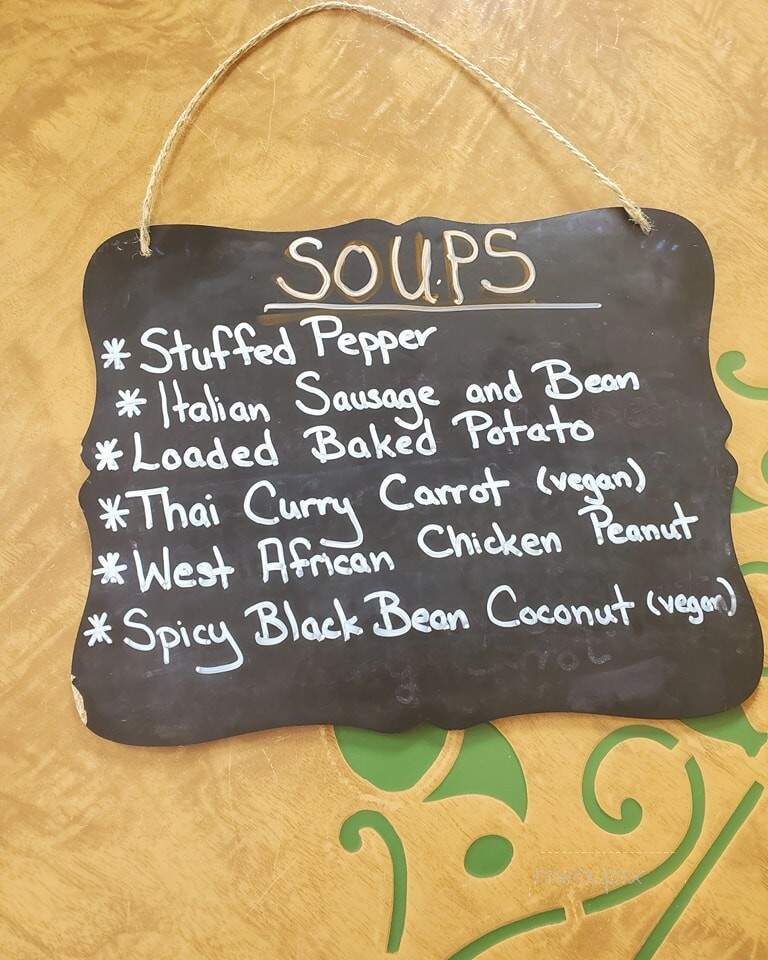 SOUPS
* Stuffed Pepper
* Italian Sausage and Bean
* Loaded Baked Potato
* Thai Curry Carrot (vegan)
* West African Chicken Peanut
* Spicy Black Bean Coconut (vegan)